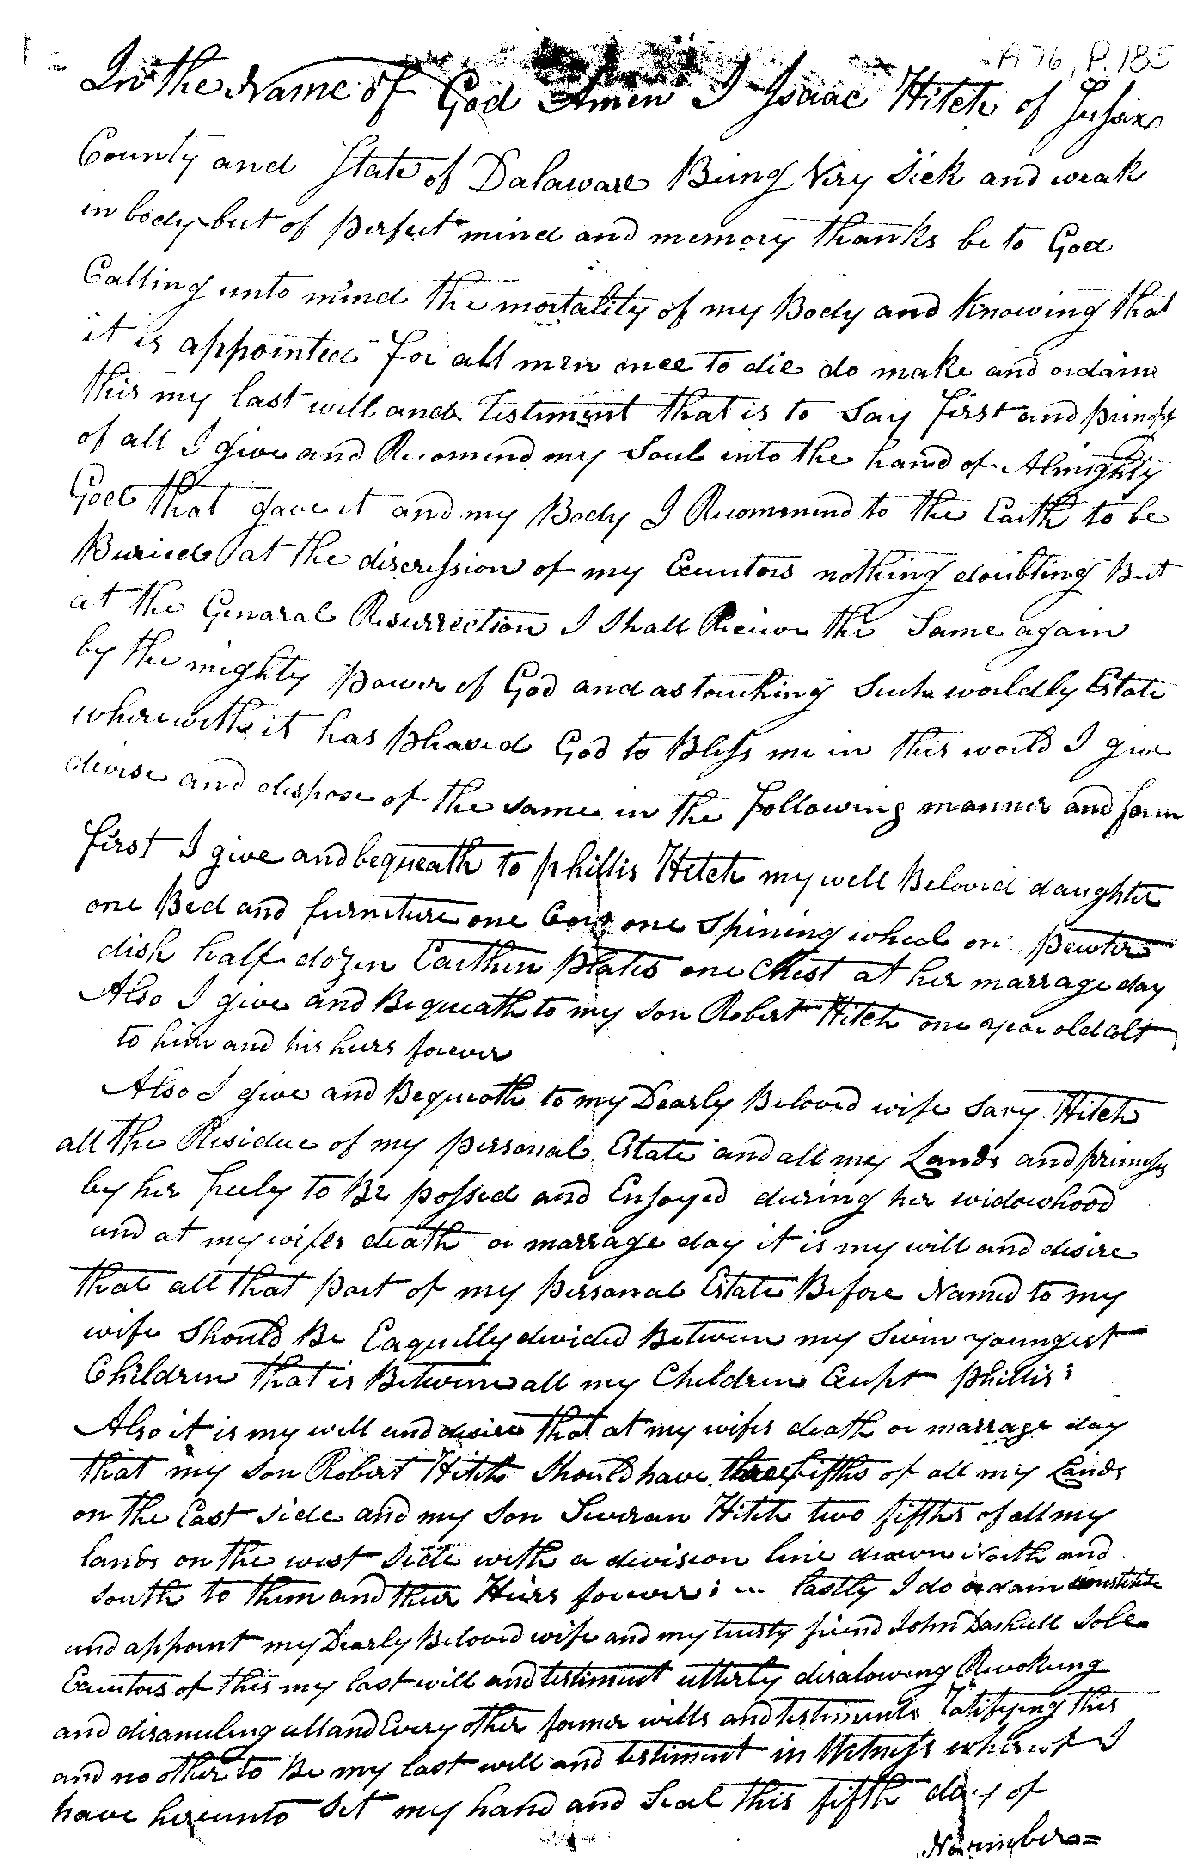 A76, P.185
In the Name of God Amen I Isaac Hitch of Susax
County and State of Dalaware Being Very Sick and weak
in body but of perfect mind and memory thanks be to God
Calling unto mind the mortality of my Body and Knowing that
it is appointed for all men once to die do make and ordaine
this my last will and Testiment that is to Say first and
of all I give and Recomend my Soul into the hand of Almighty
God that gave it and my Body I Recommend to the Earth to be
Buried at the discression of my Executors nothing doubting But
at the General Resurrection I Shall Recieve the Same again
by the mighty power of God and as touching Such worldly Estate
wherewith it has pleased God to Bless me in this world I give
devise and dispose of the same in the following manner and form
first I give and bequeath to phillis Hitch my well Beloved daughter
one Bed and furniture one Cow one Spining wheel on pewter
dish half dozen Earthen plates one Chest at her marrage day
Also I give and Bequeath to my son Robert Hitch one year old Colt
to him and his heirs forever
Also I give and Bequeath to my Dearly Beloved wife Sary Hitch
all the Residue of my personal Estate and all my Lands and primeses
by her freely to Be possed and Enjoyed during her widowhood
and at my wifes death or marrage day it is my will and desire
that all that part of my personal Estate Before Named to my
wife Should Be Eaquelly devided Between my Seven youngest
Children that is Between all my Children Except phillis:
Also it is my will and desire that at my wifes death or marrage day
that my son Robert Hitch Should have three fifths of all my Lands
on the East side and my son Hitch two fifths of all my
lands on the west Side with a division line drawn North and
South to them and their Heirs forever: lastly I do ordain constitute
and appoint my Dearly Beloved wife and my trusty friend John Dashiell Sole
Executors of this my last will and testiment utterly disalowing Revokeing
and disanuling all and Every other former wills and testiments Ratifying this
and no other to Be my last will and testiment in Witness whereof I
have hereunto Set my hand and Seal this fifth day of
November=